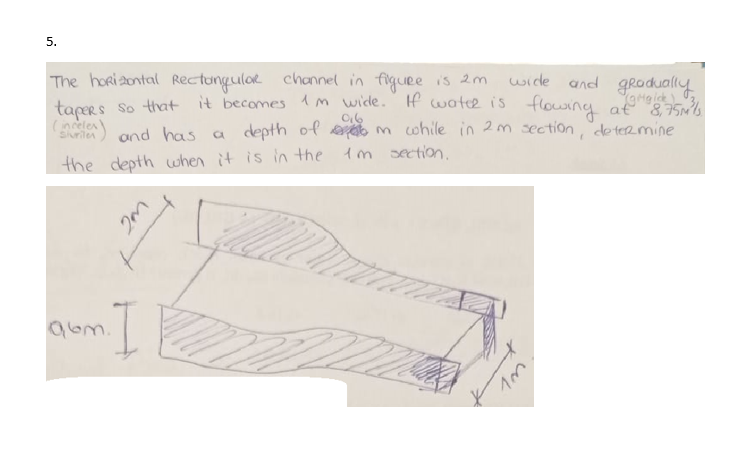 5.
The horizontal Rectangular channel in figure is 2m wide and gradually
tapers so that it becomes 1m wide. If water is flowing at 8,75m³/s
and has a depth of 0,6 m while in 2m section, determine
the depth when it is in the 1m section.
2m
0,6m.
1m